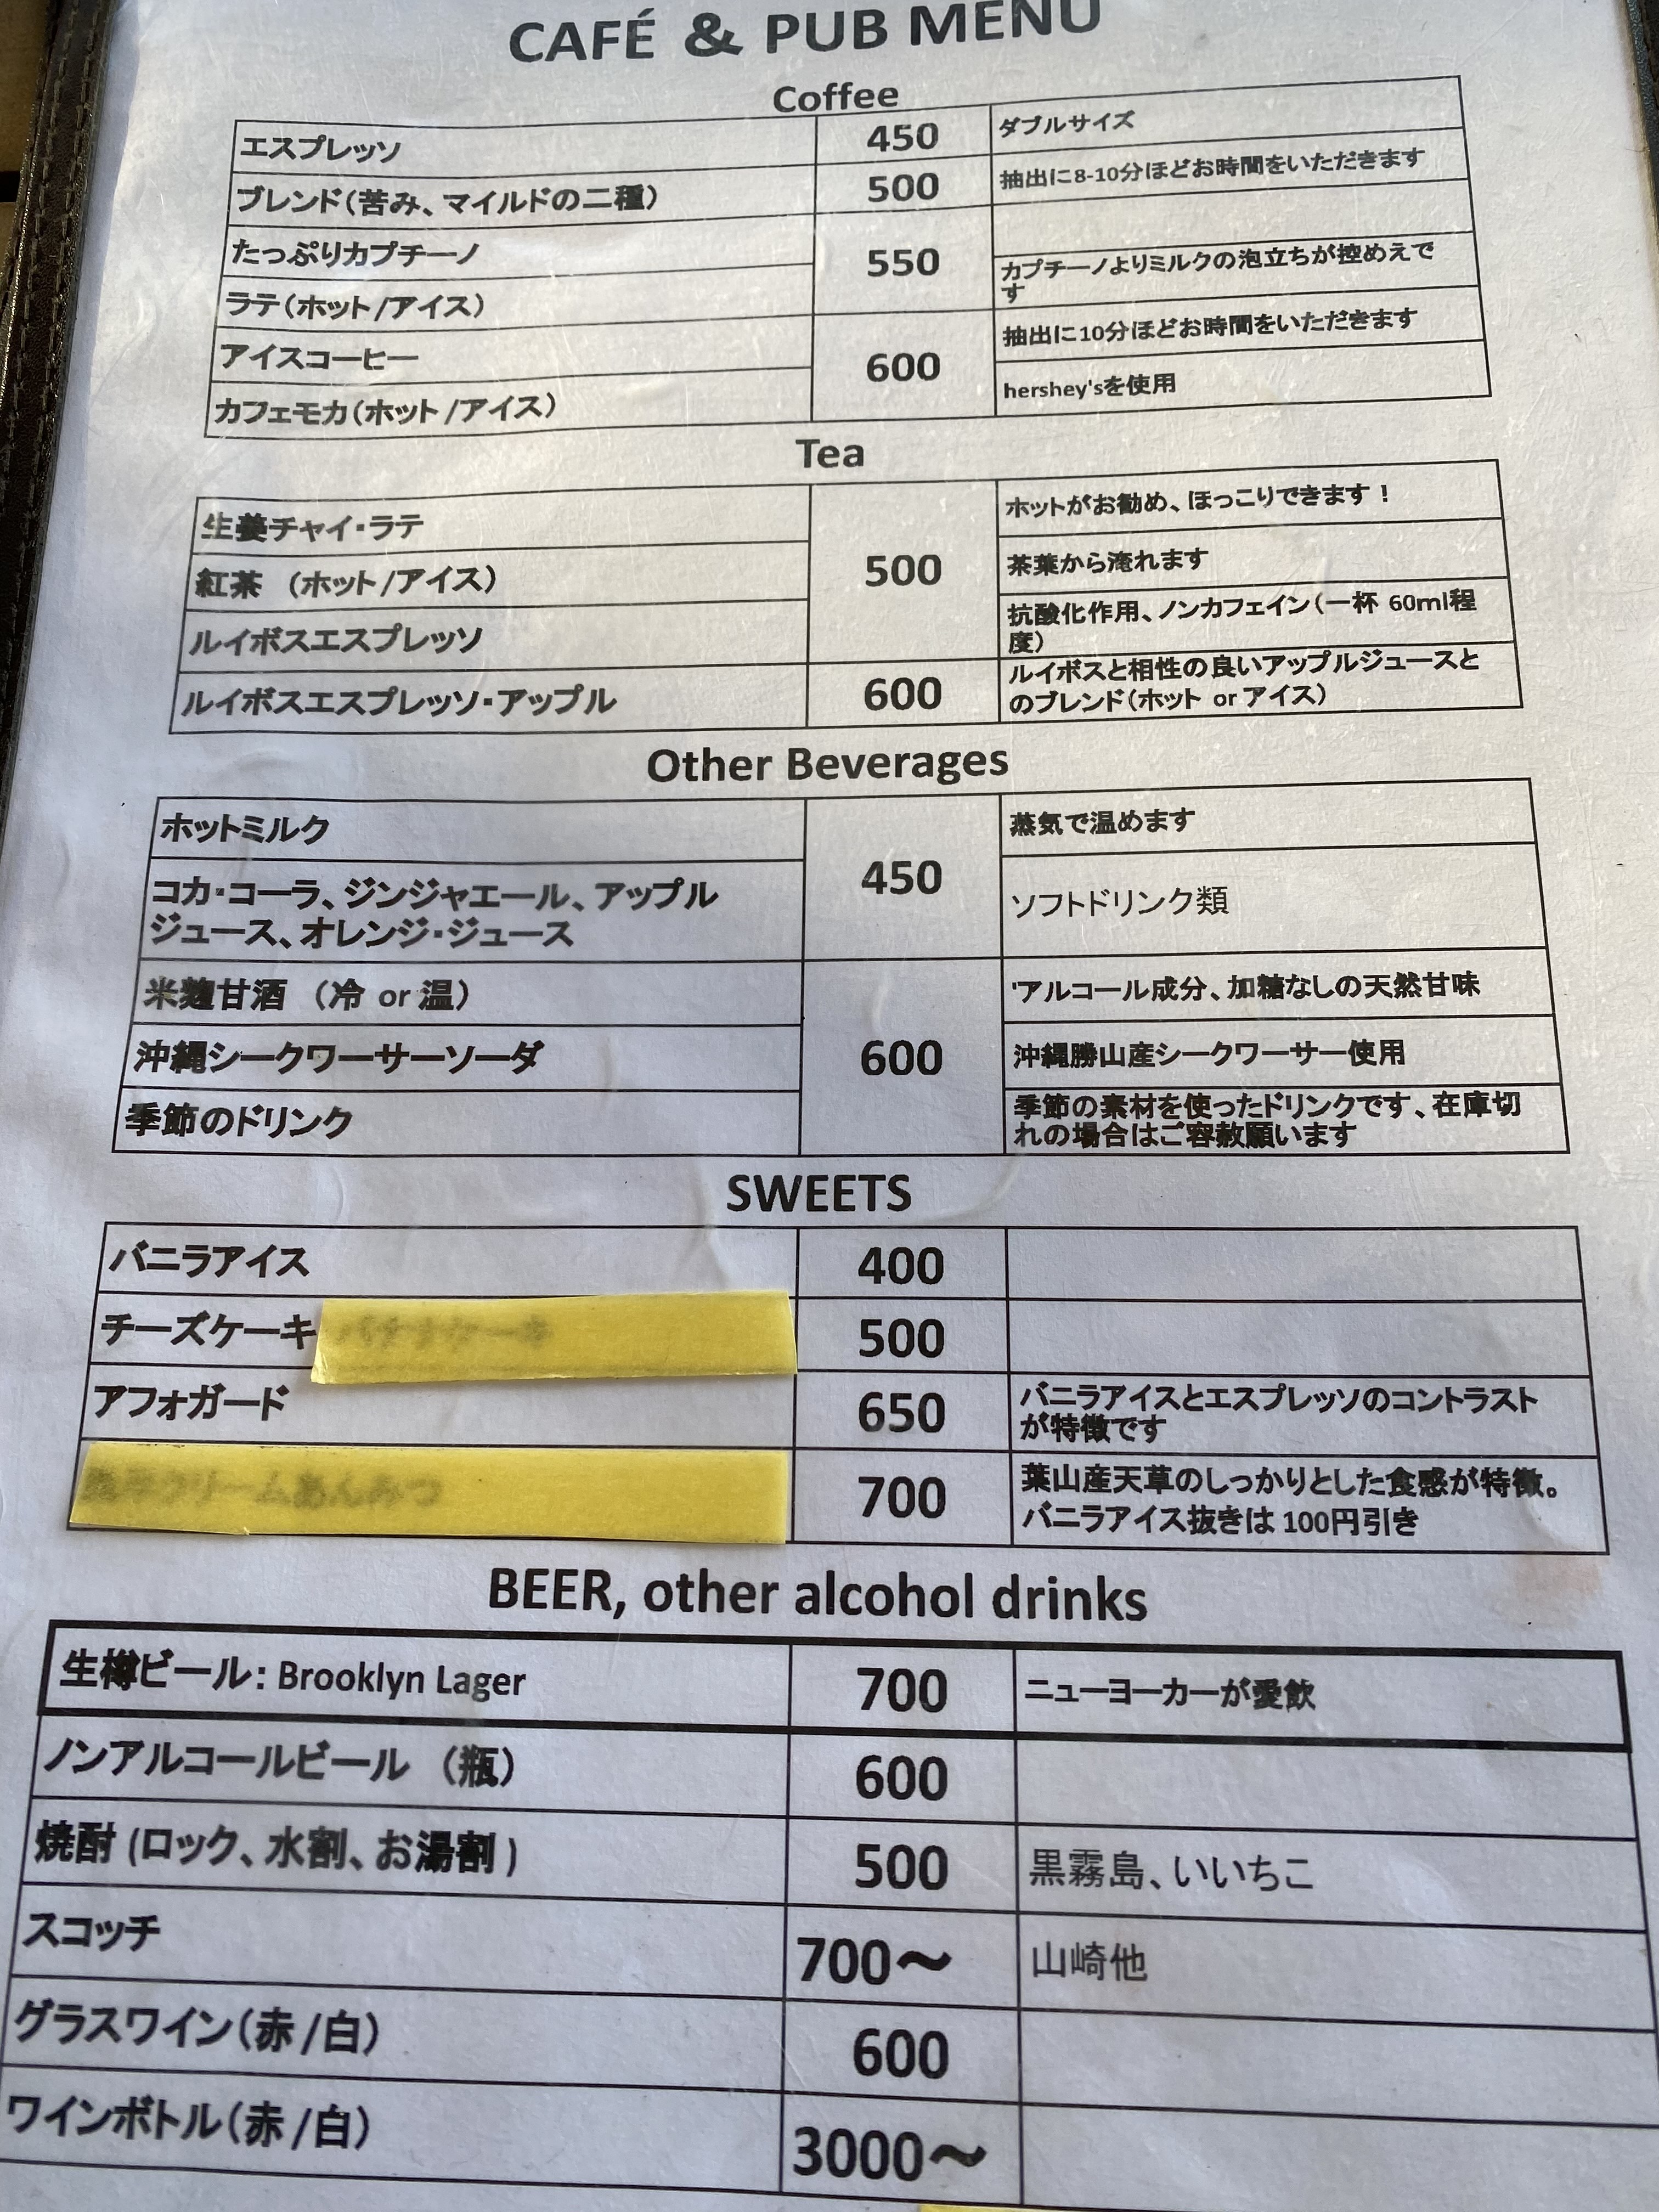 CAFÉ & PUB MENU
Coffee
エスプレッソ 450 ダブルサイズ
ブレンド(苦み、マイルドの二種) 500 抽出に8-10分ほどお時間をいただきます
たっぷりカプチーノ 550
ラテ(ホット/アイス) カプチーノよりミルクの泡立ちが控めえで
す
アイスコーヒー 600 抽出に10分ほどお時間をいただきます
カフェモカ(ホット/アイス) hershey'sを使用
Tea
生姜チャイ・ラテ 500 ホットがお勧め、ほっこりできます！
紅茶 (ホット/アイス) 茶葉から淹れます
ルイボスエスプレッソ 抗酸化作用、ノンカフェイン(一杯 60ml程
度)
ルイボスエスプレッソ・アップル 600 ルイボスと相性の良いアップルジュースと
のブレンド(ホット or アイス)
Other Beverages
ホットミルク 450 蒸気で温めます
コカ・コーラ、ジンジャエール、アップル
ジュース、オレンジ・ジュース ソフトドリンク類
米麹甘酒 (冷 or 温) 600 アルコール成分、加糖なしの天然甘味
沖縄シークワーサーソーダ 沖縄勝山産シークワーサー使用
季節のドリンク 季節の素材を使ったドリンクです、在庫切
れの場合はご容赦願います
SWEETS
バニラアイス 400
チーズケーキ 500
アフォガード 650 バニラアイスとエスプレッソのコントラスト
が特徴です
クリームあんみつ 700 葉山産天草のしっかりとした食感が特徴。
バニラアイス抜きは 100円引き
BEER, other alcohol drinks
生樽ビール: Brooklyn Lager 700 ニューヨーカーが愛飲
ノンアルコールビール (瓶) 600
焼酎 (ロック、水割、お湯割) 500 黒霧島、いいちこ
スコッチ 700～ 山崎他
グラスワイン(赤/白) 600
ワインボトル(赤/白) 3000～